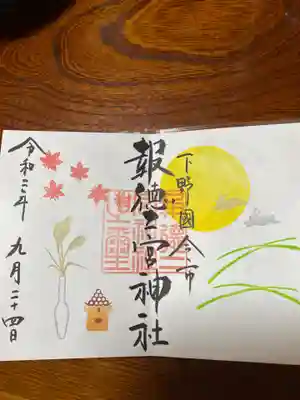 下野國今市
報徳二宮神社
令和三年
九月二十四日